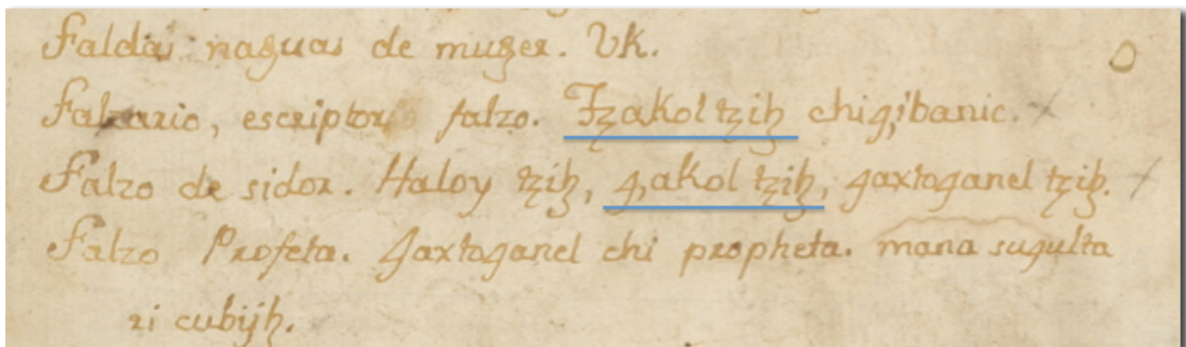 Faldas naguas de muger. Vk.
Falzario, escriptor falzo. Tzakol tzih chiꜯibanic.
Falzo de sidor. Haloy tzih, ꜯakol tzih, ꜭaxtoꜭanel tzih.
Falzo Profeta. ꜭaxtoꜭanel chi propheta. mana suꜭulta
ri cubijh.